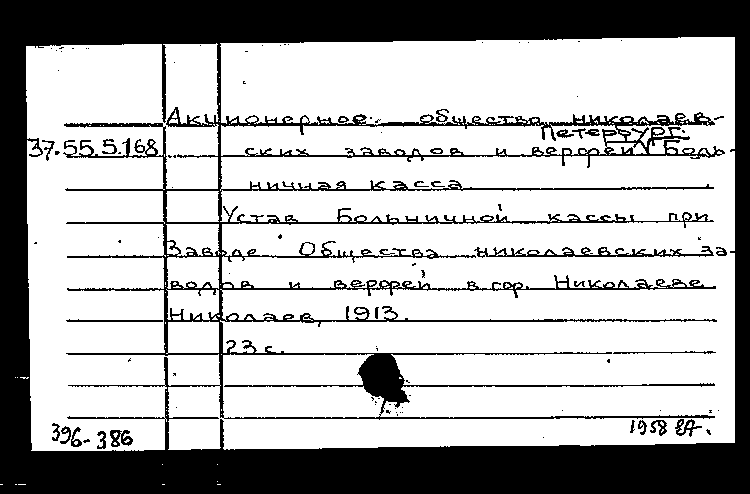 Акционерное общество николаев-
Петербург.
37.55.5.168 ских заводов и верфей. Боль-
ничная касса.
Устав Больничной кассы при
Заводе Общества николаевских за-
водов и верфей в гор. Николаеве
Николаев, 1913.
23 с.
396-386
1958